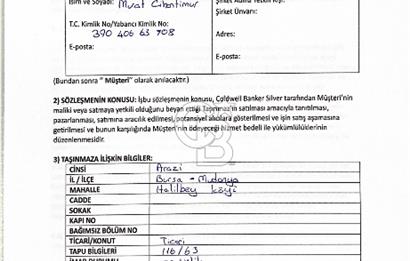 İsim ve Soyadı: Murat
Şirket Ünvanı:
T.C. Kimlik No/Yabancı Kimlik No:
390 406 63 708
Adres:
E-posta:
E-posta:
(Bundan sonra " Müşteri" olarak anılacaktır.)
2) SÖZLEŞMENİN KONUSU: İşbu sözleşmenin konusu, Coldwell Banker Silver tarafından Müşteri'nin
maliki veya satmaya yetkili olduğunu beyan ettiği Taşınmaz'ın satılması amacıyla tanıtılması,
pazarlanması, satımına aracılık edilmesi, potansiyel alıcılara gösterilmesi ve işin satış aşamasına
getirilmesi ve bunun karşılığında Müşteri'nin ödeyeceği hizmet bedeli ile yükümlülüklerinin
düzenlenmesidir.
3) TAŞINMAZA İLİŞKİN BİLGİLER:
CİNSİ Arazi
İL / İLÇE Bursa - Mudanya
MAHALLE Halilbey köyü
CADDE
SOKAK
KAPI NO
BAĞIMSIZ BÖLÜM NO
TİCARİ/KONUT Ticari
TAPU BİLGİLERİ 116/63